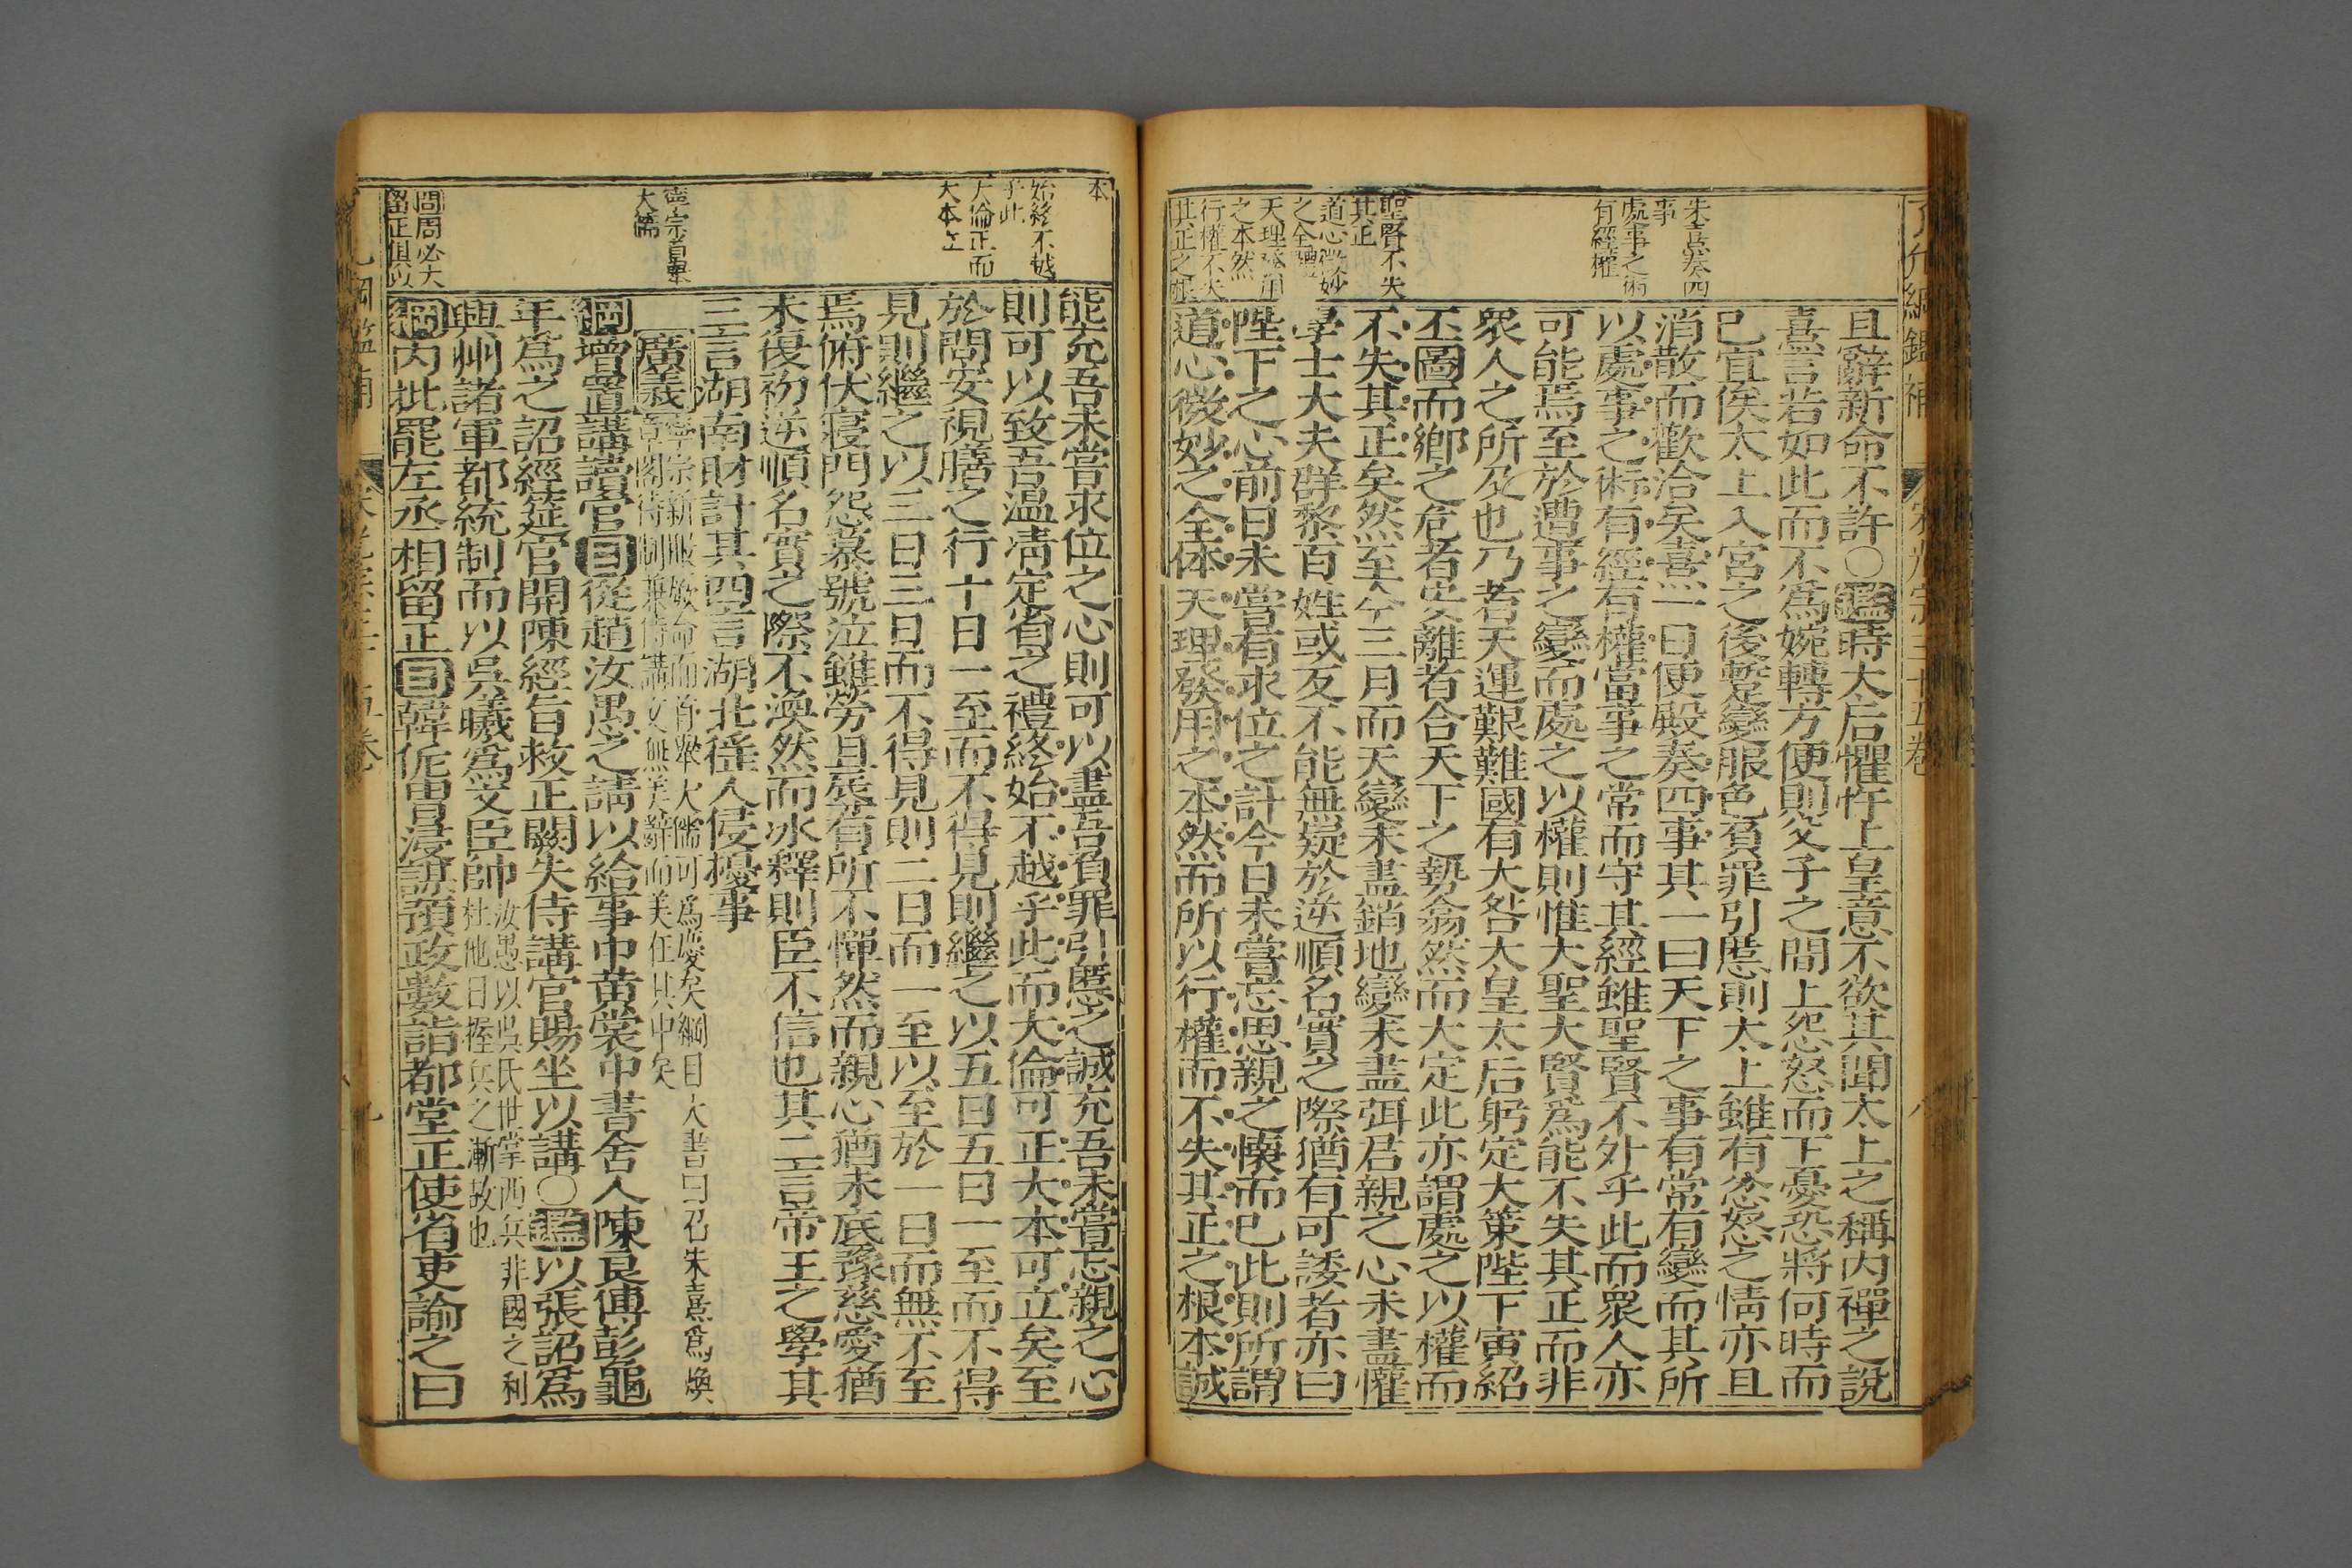 朱熹奏四
事
處事之術
有經權
聖賢不失
其正
道心微妙
之全體
天理發用
之本然
行權不失
其正之根
且辭新命不許○鑑時太后懼忤上皇意不欲其聞太上之稱內禪之說
熹言若如此而不爲婉轉方便則父子之間上怨怒而下憂恐將何時而
已宜俟太上入宮之後暫變服色負罪引慝則太上雖有忿怒之情亦且
消散而歡洽矣熹一日便殿奏四事其一曰天下之事有常有變而其所
以處事之術有經有權當事之常而守其經雖聖賢不外乎此而眾人亦
可能焉至於遭事之變而處之以權則惟大聖大賢爲能不失其正而非
衆人之所及也乃者天運艱難國有大咎大皇太后躬定大策陛下寅紹
丕圖而鄉之危者安離者合天下之勢翕然而大定此亦謂處之以權而
不失其正矣然至今三月而天變未盡銷地變未盡弭君親之心未盡懽
學士大夫群黎百姓或反不能無疑於逆順名實之際猶有可諉者亦曰
陛下之心前日未嘗有求位之計今日未嘗忘思親之懷而已此則所謂
道心微妙之全体天理發用之本然而所以行權而不失其正之根本誠
本
始終不越
乎此
大倫正而
大本立
寧宗首舉
大儒
問周必大
留正俱以
能充吾未嘗求位之心則可以盡吾負罪引慝之誠充吾未嘗忘親之心
則可以致吾温凊定省之禮終始不越乎此而大倫可正大本可立矣至
於問安視膳之行十日一至而不得見則繼之以五日五日一至而不得
見則繼之以三日三日而不得見則二日而一至以至於一日而無不至
焉俯伏寢門怨慕號泣雖勞且辱有所不憚然而親心猶未底豫慈愛猶
未復初逆順名實之際不渙然而冰釋則臣不信也其二言帝王之學其
三言湖南財計其四言湖北猺人侵擾事
廣義寧宗新服敏命而首舉大儒可爲慶矣綱目大書曰召朱熹爲煥
章閣待制兼侍講文無美辭而美在其中矣
綱增置講讀官目從趙汝愚之請以給事中黃裳中書舍人陳良傅彭龜
年爲之詔經筵官開陳經旨救正闕失侍講官賜坐以講○鑑以張詔爲
興州諸軍都統制而以吳曦爲文臣帥汝愚以吳氏世掌西兵非國之利
杜他日握兵之漸故也
綱內批罷左丞相留正目韓侂冑浸謀預政數詣都堂正使省吏諭之曰